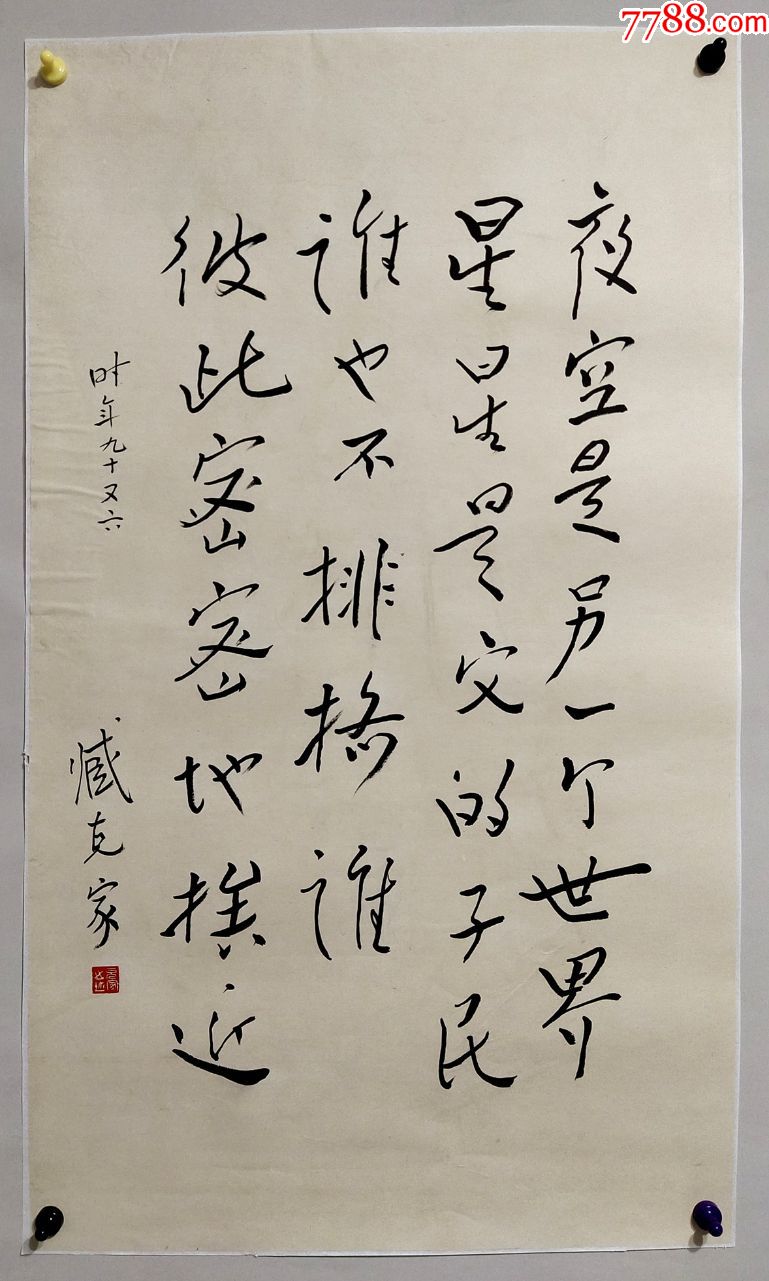 7788.com
夜空是另一个世界
星星是它的子民
谁也不排挤谁
彼此密密地挨近
时年九十又六
臧克家